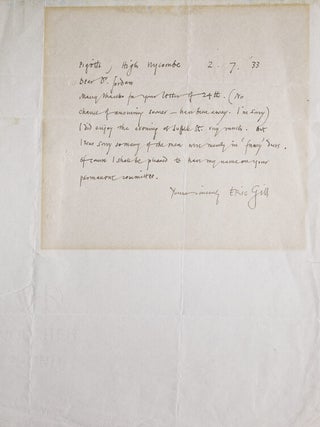 Pigotts, High Wycombe 2. 7. 33
Dear Dr. Jordan
Many thanks for your letter of 24th. (No
chance of answering sooner – have been away. I'm sorry)
I did enjoy the evening at very much. But
I was sorry so many of the men were merely in 'fancy' dress.
Of course I shall be pleased to have my name on your
permanent committee.
Yours sincerely Eric Gill